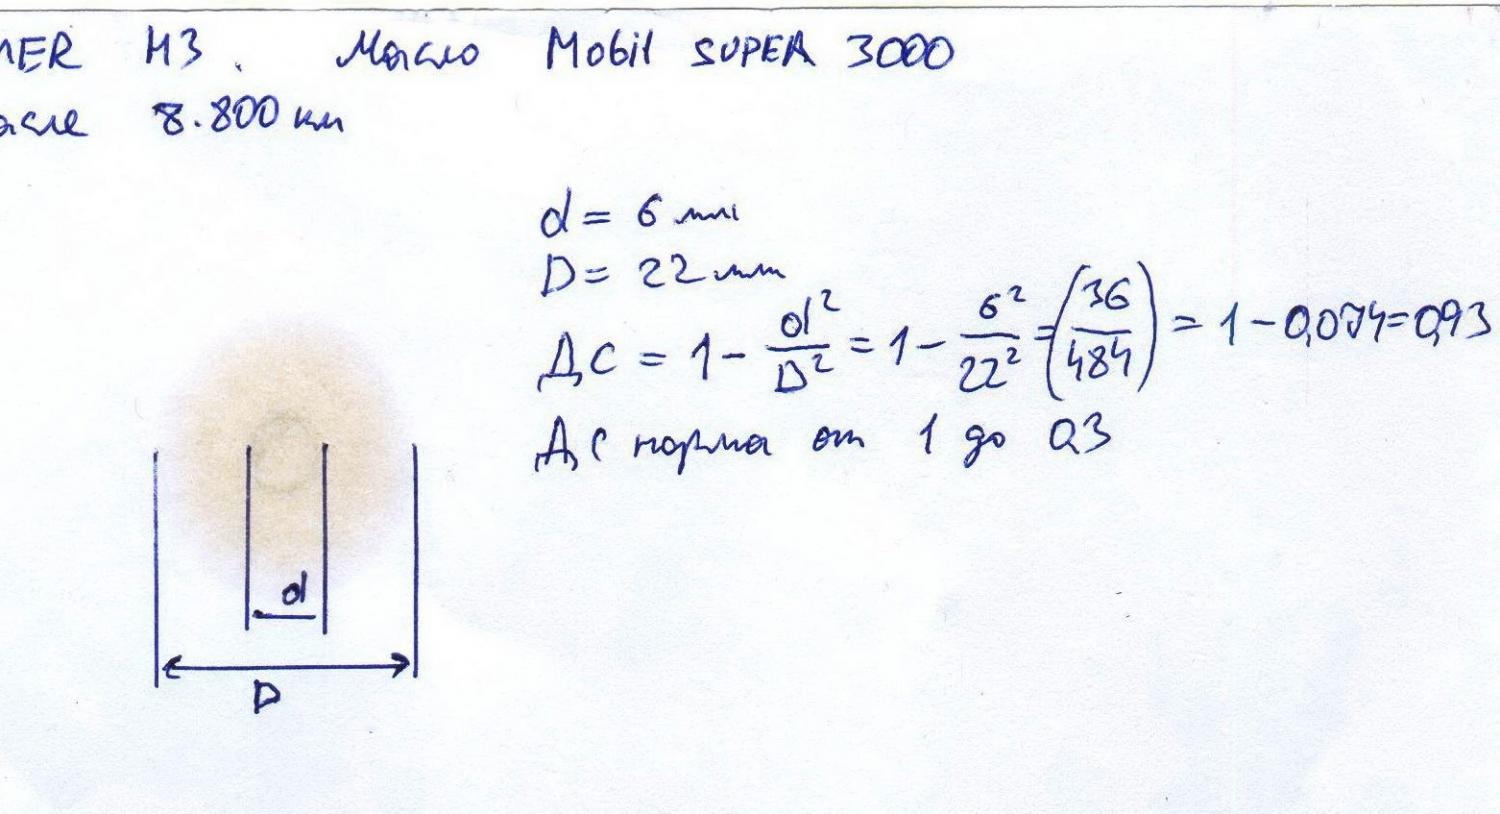 MER H3. Масло Mobil SUPER 3000
асле 8.800 км
d = 6 мм
D = 22 мм
ДС = 1 - d²/D² = 1 - 6²/22² = (36/484) = 1 - 0,074 = 0,93
ДС норма от 1 до 0,3
d
D